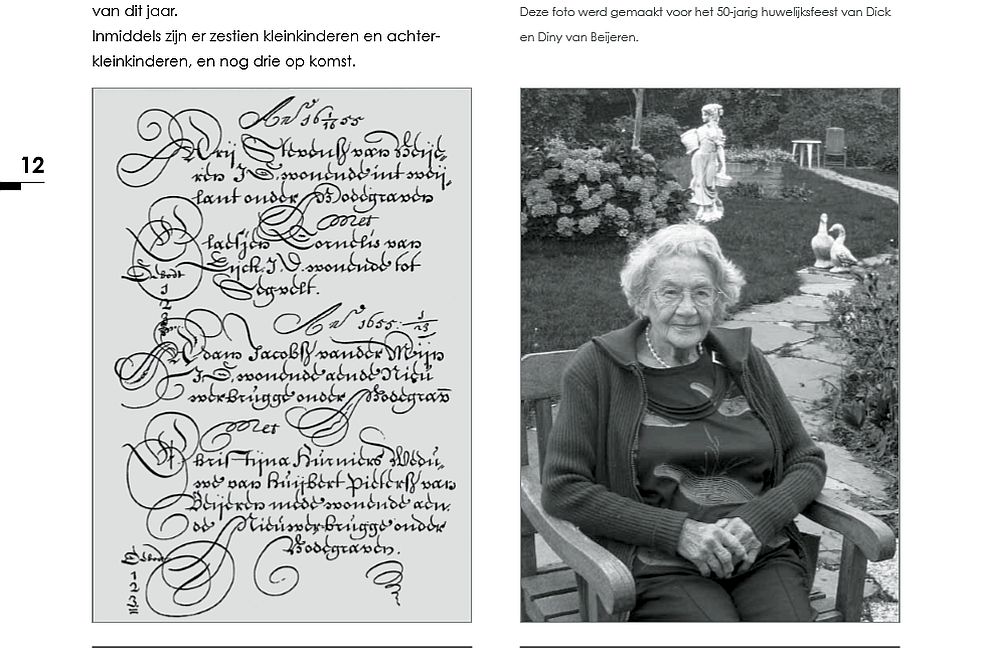 van dit jaar.
Inmiddels zijn er zestien kleinkinderen en achter-
kleinkinderen, en nog drie op komst.
Deze foto werd gemaakt voor het 50-jarig huwelijksfeest van Dick
en Diny van Beijeren.
12
Arij Stevensz van Beije,
ren J.D. wonende int weij,
lant onder Bodegraven
Met
Cornelis van
Eijck. J.D. wonende tot
Segvelt.
1
2
Ano 1655
Adam Jacobsz vander Meijn
J.D. wonende aende Nieu
werbrugge onder Bodegrav
Met
Christijna Wedu,
we van Huijbert Pietersz van
Beijeren mede wonende aen
de Nieuwerbrugge onder
Bodegraven.
1
2
3